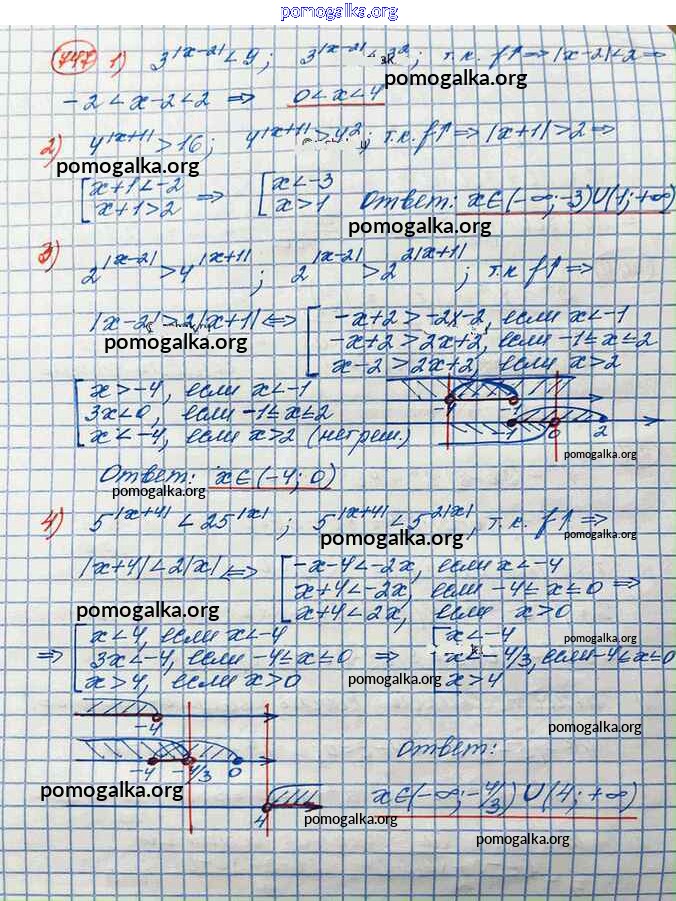 pomogalka.org
747 1) 3^|x-2| < 9; 3^|x-2| < 3^2; т.к. f↑ ⇒ |x-2| < 2 ⇒
pomogalka.org
-2 < x-2 < 2 ⇒ 0 < x < 4
2) 4^|x+1| > 16; 4^|x+1| > 4^2; т.к. f↑ ⇒ |x+1| > 2 ⇒
pomogalka.org
[ x+1 < -2 ⇒ [ x < -3
x+1 > 2 x > 1 Ответ: x∈(-∞;-3)∪(1;+∞)
pomogalka.org
3) 2^|x-2| > 4^|x+1|; 2^|x-2| > 2^2|x+1|; т.к f↑ ⇒
|x-2| > 2|x+1| ⇔ [ -x+2 > -2x-2, если x < -1
pomogalka.org
-x+2 > 2x+2, если -1 ≤ x ≤ 2
x-2 > 2x+2, если x > 2
[ x > -4, если x < -1
3x < 0, если -1 ≤ x ≤ 2
-4 -1
x < -4, если x > 2 (нет реш.)
-1 0 2
pomogalka.org
Ответ: x∈(-4; 0)
pomogalka.org
4) 5^|x+4| < 25^|x|; 5^|x+4| < 5^2|x|, т.к. f↑ ⇒
pomogalka.org
pomogalka.org
|x+4| < 2|x| ⇔ [ -x-4 < -2x, если x < -4
x+4 < -2x, если -4 ≤ x ≤ 0 ⇒
pomogalka.org
x+4 < 2x, если x > 0
⇒ [ x < 4, если x < -4 [ x < -4
pomogalka.org
3x < -4, если -4 ≤ x ≤ 0 ⇒ x < -4/3, если -4 ≤ x ≤ 0
x > 4, если x > 0 x > 4
pomogalka.org
-4
pomogalka.org
Ответ:
-4 -4/3 0
pomogalka.org
x∈(-∞;-4/3)∪(4;+∞)
4
pomogalka.org
pomogalka.org